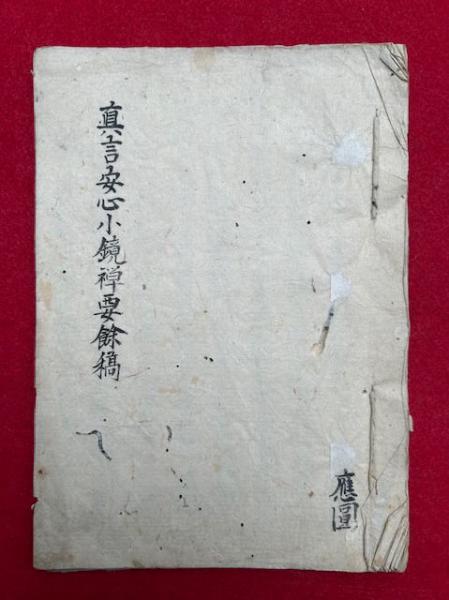 真言安心小鏡禅要餘稿
應圓